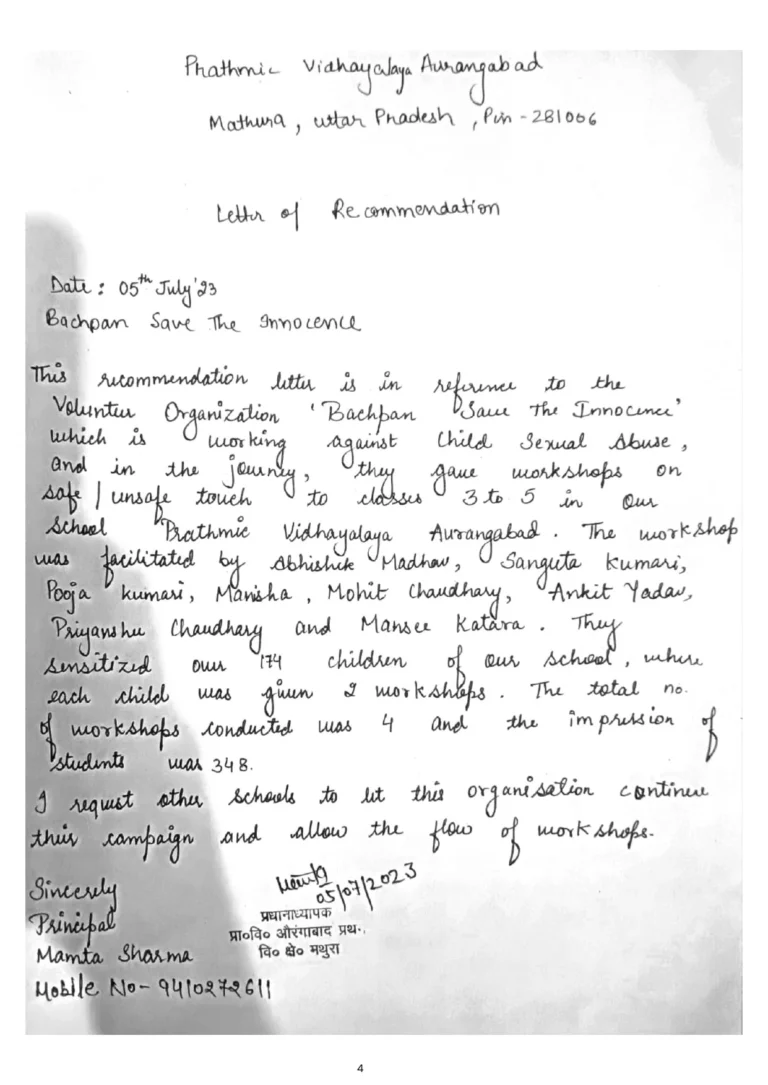 Prathmic Vidhayalaya Aurangabad
Mathura, uttar Pradesh, Pin - 281006
Letter of Recommendation
Date : 05th July'23
Bachpan Save The Innocence
This recommendation letter is in reference to the
Volunteer Organization 'Bachpan Save The Innocence'
which is working against Child Sexual Abuse,
and in the journey, they gave workshops on
safe / unsafe touch to classes 3 to 5 in our
School Prathmic Vidhayalaya Aurangabad. The workshop
was facilitated by Abhishek Madhav, Sangeeta Kumari,
Pooja Kumari, Manisha, Mohit Chaudhary, Ankit Yadav,
Priyanshu Chaudhary and Mansee Katara. They
sensitized over 174 children of our school, where
each child was given 2 workshops. The total no.
of workshops conducted was 4 and the impression of
students was 348.
I request other schools to let this organisation continue
their campaign and allow the flow of workshops.
Sincerely
Principal
Mamta Sharma
Mobile No- 9410272611
05/07/2023
प्रधानाध्यापक
प्रा०वि० औरंगाबाद प्रथ..
वि० क्षे० मथुरा
4